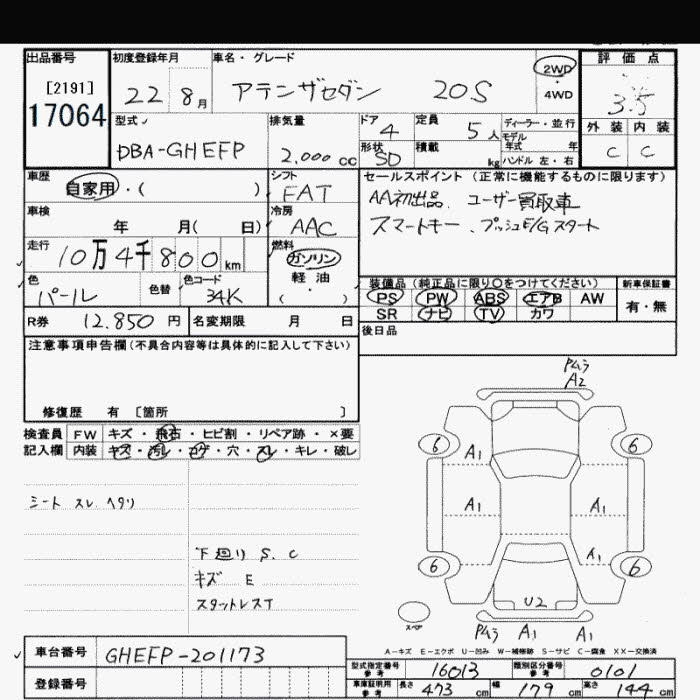 出品番号 初度登録年月 車名・グレード 2WD ・ 4WD 評価点
[2191] 17064 22 8月 アテンザセダン 20S 3.5
型式 排気量 ドア 定員 ディーラー・並行 外装 内装
DBA-GHEFP 2.000cc 4 5人 モデル年式 年 C C
形状 積載 kg ハンドル 左・右
SD
車歴 シフト セールスポイント (正常に機能するものに限ります)
自家用・( ) FAT AA初出品、ユーザー買取車
車検 冷房 スマートキー、プッシュE/Gスタート
年 月( 日) AAC
走行 燃料
10万4千800km ガソリン
軽油
・( )
色 色替 色コード 装備品(純正品に限り○をつけてください) 新車保証書
パール 34K PS PW ABS エアB AW 有・無
SR ナビ TV カワ
R券 12.850円 名変期限 月 日 後日品
注意事項申告欄(不具合内容等は具体的に記入して下さい)
修復歴 有 [箇所 ]
検査員 FW キズ・飛石・ヒビ割・リペア跡・×要
記入欄 内装 キズ・汚レ・コゲ・穴・スレ・キレ・破レ
シート スレ ヘタリ
下廻り S. C
キズ E
スタットレスT
Pムラ
A2
6 6
A1
A1 A1
A1
6 6
U2
スペア
Pムラ A1 A1
A-キズ E-エクボ U-凹み W-補修跡 S-サビ C-腐食 XX-交換済
車台番号 GHEFP-201173
登録番号
型式指定番号 参考 16013 類別区分番号 参考 0101
車庫証明用 参考 長さ 473cm 幅 179cm 高さ 144cm